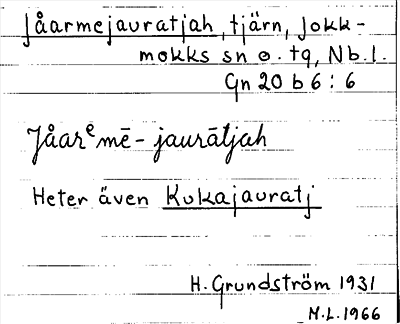 Jåarmejauratjah, tjärn, Jokk-
mokks sn o. tg, Nb.l.
Gn 20 b 6 : 6
Jåarᵉmē-jaurātjah
Heter även Kukajauratj
H. Grundström 1931
M.L. 1966